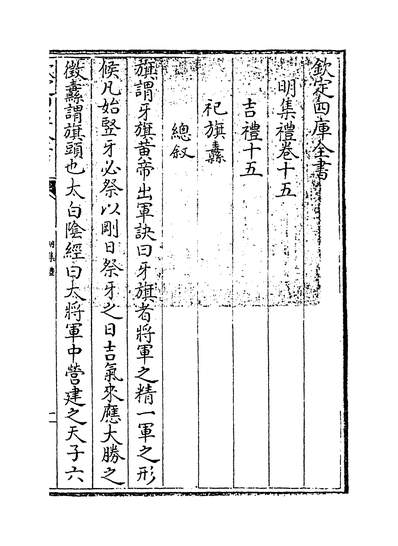 欽定四庫全書
明集禮卷十五
吉禮十五
祀旗纛
總叙
旗謂牙旗黄帝出軍訣曰牙旗者將軍之精一軍之形
候凡始竪牙必祭以剛日祭牙之日吉氣來應大勝之
徵纛謂旗頭也太白隂經曰大將軍中營建之天子六
明集禮